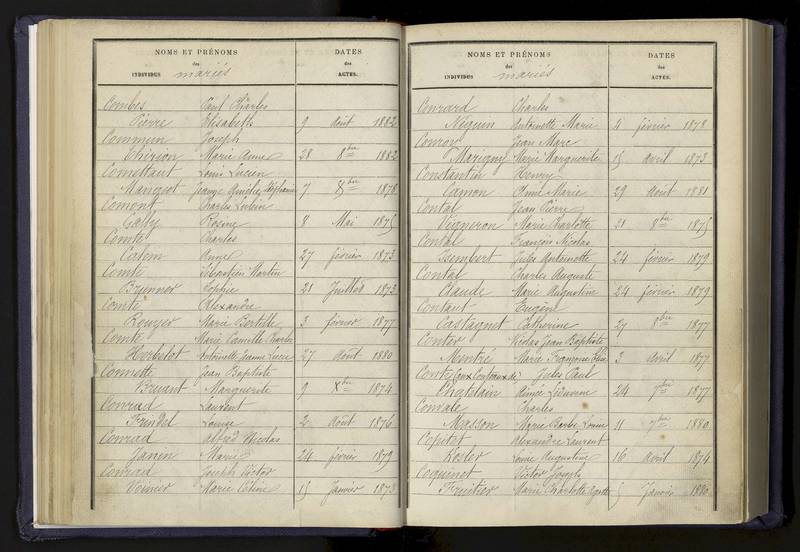 NOMS ET PRÉNOMS DATES
des des
INDIVIDUS mariés ACTES.
Combes Paul Charles
Pierre Elisabeth 9 Août 1882
Commun Joseph
Thirion Marie Anne 28 8bre 1882
Comettant Louis Lucien
Mangeot Jeanne Amélie Stéphanie 7 1878
Comont Charles Lubin
Rosine 8 Mai 1875
Comte Charles
Anne 27 février 1873
Comte Sébastien Martin
Brunner Sophie 21 Juillet 1873
Comte Alexandre
Rouyer Marie Bertille 3 février 1877
Comte Marie Camille Charles
Herbelot Antoinette Jeanne Lucie 27 Août 1880
Connette Jean Baptiste
Bruant Marguerite 9 Xbre 1874
Conrad Laurent
Frindel Louise 2 Août 1876
Conrad Alfred Nicolas
Janin Marie 24 février 1879
Conrad Joseph Victor
Voinier Marie Céline 15 Janvier 1873
NOMS ET PRÉNOMS DATES
des des
INDIVIDUS mariés ACTES.
Conrard Charles
Noguin Antoinette Marie 4 février 1878
Jean Marc
Marigny Marie Marguerite 15 avril 1873
Constantin Henry
Camon Anne Marie 29 Août 1881
Contal Jean Pierre
Vigneron Marie Charlotte 21 8bre 1875
Contal François Nicolas
Isembert Julie Antoinette 24 février 1879
Contal Charles Auguste
Claude Marie Augustine 24 février 1879
Contaut Eugène
Castagnet Catherine 27 8bre 1877
Conter Nicolas Jean Baptiste
Marie Françoise 3 avril 1877
Conte (aux Couteaux de) Jules Paul
Chatelain Aimée 24 7bre 1877
Charles
Masson Marie Barbe Louise 11 7bre 1880
Copitet Alexandre Laurent
Koster Louise Augustine 16 Avril 1874
Coquinet Victor Joseph
Fruitier Marie Charlotte Agathe 5 Janvier 1880